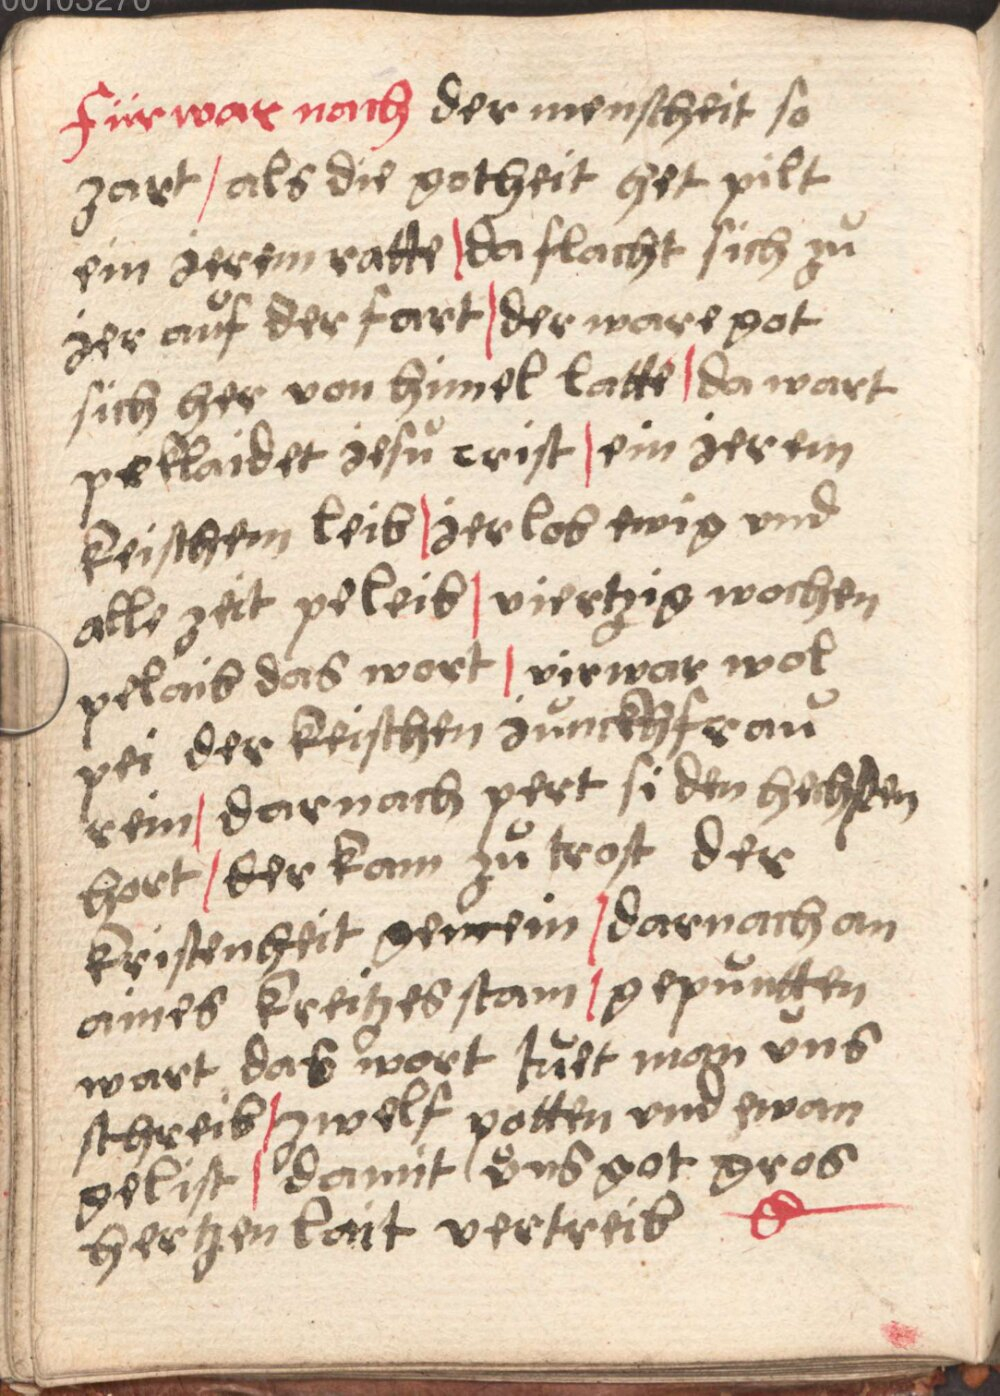 00103270
Fürwar nach der menscheit so
zart / als die gotheit het pilt
ein jerem ratte / da flacht sich zů
jer aůf der fart / der ware got
sich her von himel latte / da wart
peklaidet jesů crist / ein jerem
keischem leib / jer lob ewig vnd
alle zeit peleib / viertzig wochen
pelaib das wort / virwar wol
pei der keischen jůnckhfraů
rein / darnach pert si den hechsten
hort / der kam zů trost der
kristenheit gemein / darnach an
aines kreitzes stam / gepůntten
wart das wort tůet man ůns
schreib / zwelf potten vnd ewan
gelist / damit ůns got gros
hertzen lait vertreib